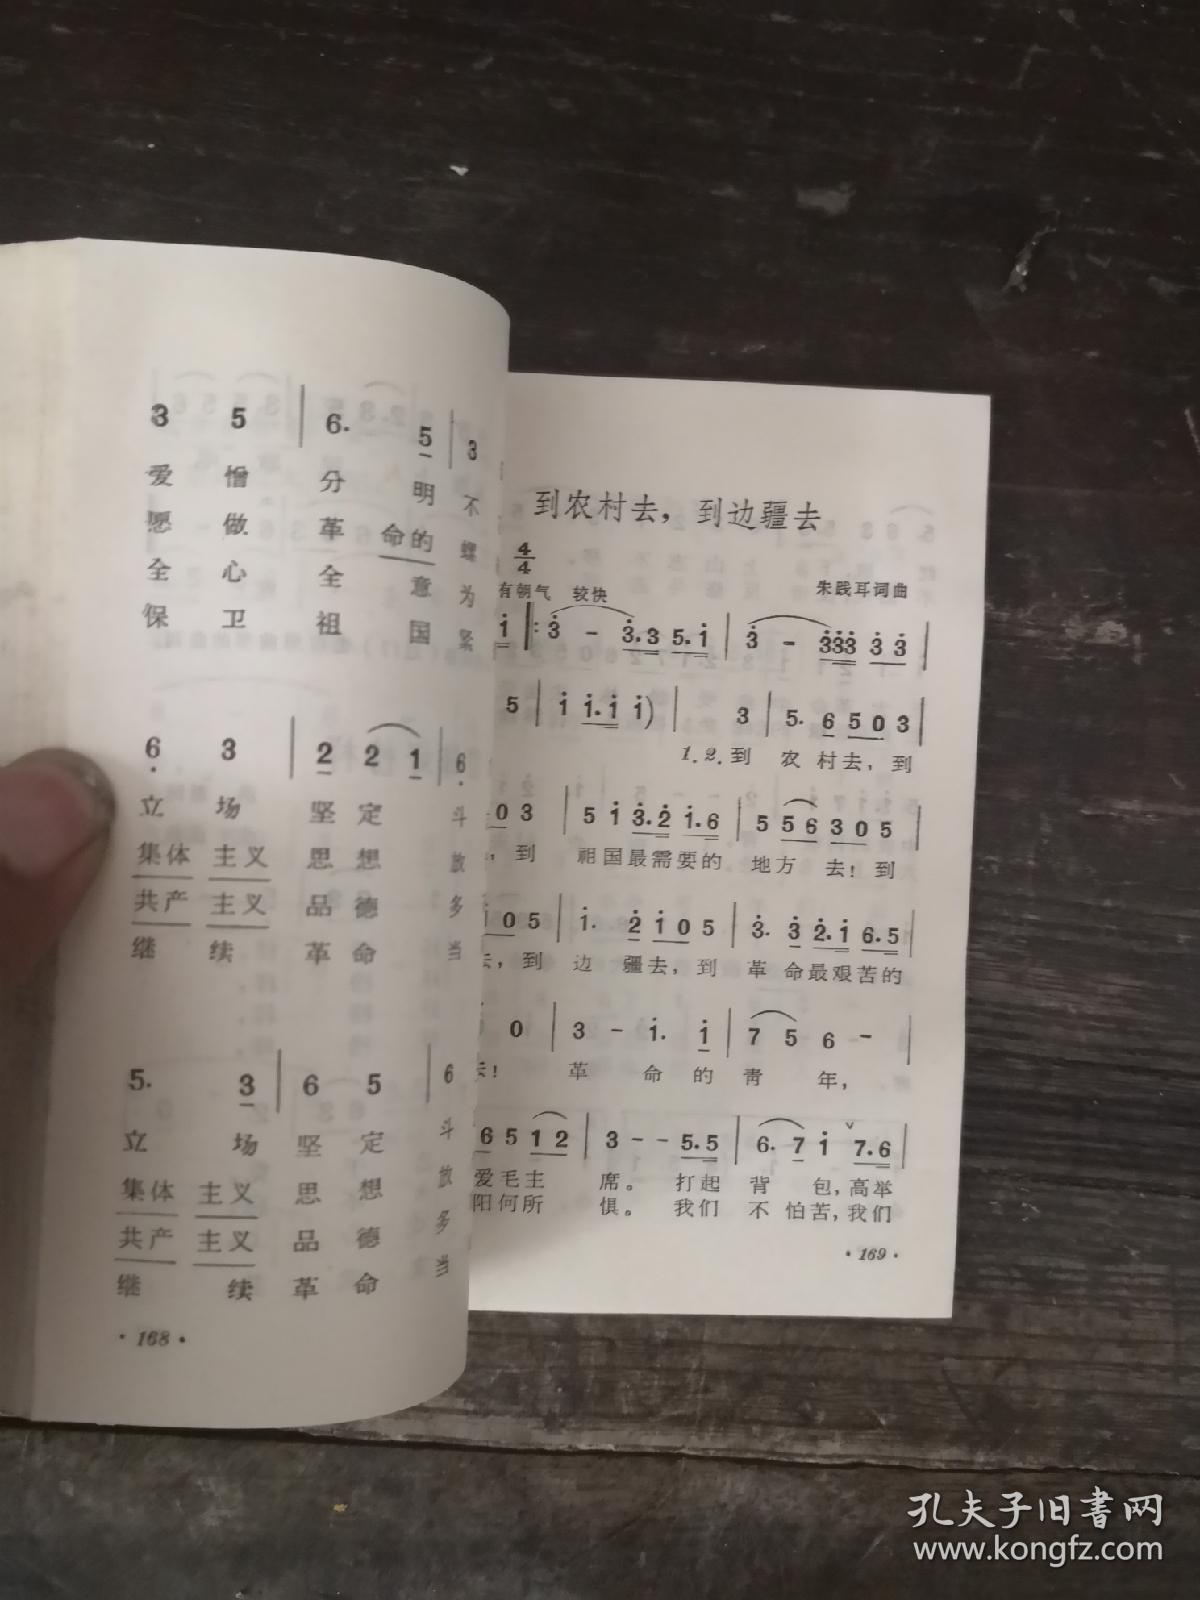 3 5 | 6. 5 | 3
爱 憎 分 明 不
愿 做 革 命的 螺
全 心 全 意 为
保 卫 祖 国 紧
6 3 | 2 2 1 | 6
立 场 坚 定 斗
集体 主义 思 想 放
共产 主义 品 德 多
继 续 革 命 当
5. 3 | 6 5 | 6
立 场 坚 定 斗
集体 主义 思 想 放
共产 主义 品 德 多
继 续 革 命 当
· 168 ·
到农村去，到边疆去
4/4
有朝气 较快
朱践耳词曲
i ‖: 3 - 3.3 5.i | 3 - 333 3 3 |
5 | i i.i i) | 3 | 5. 6 5 0 3 |
1.2.到 农 村去，到
0 3 | 5 i 3.2 i.6 | 5 5 6 3 0 5 |
，到 祖国最需要的 地方 去！到
i 0 5 | i. 2 i 0 5 | 3. 3 2.i 6.5 |
去，到 边 疆去，到 革 命最艰苦的
0 | 3 - i. i | 7 5 6 - |
去！ 革 命 的 青 年，
6 5 1 2 | 3 - - 5.5 | 6. 7 i ∨ 7.6 |
爱毛主 席。 打起 背 包，高举
阳何所 惧。 我们 不 怕苦，我们
· 169 ·
孔夫子旧书网
www.kongfz.com